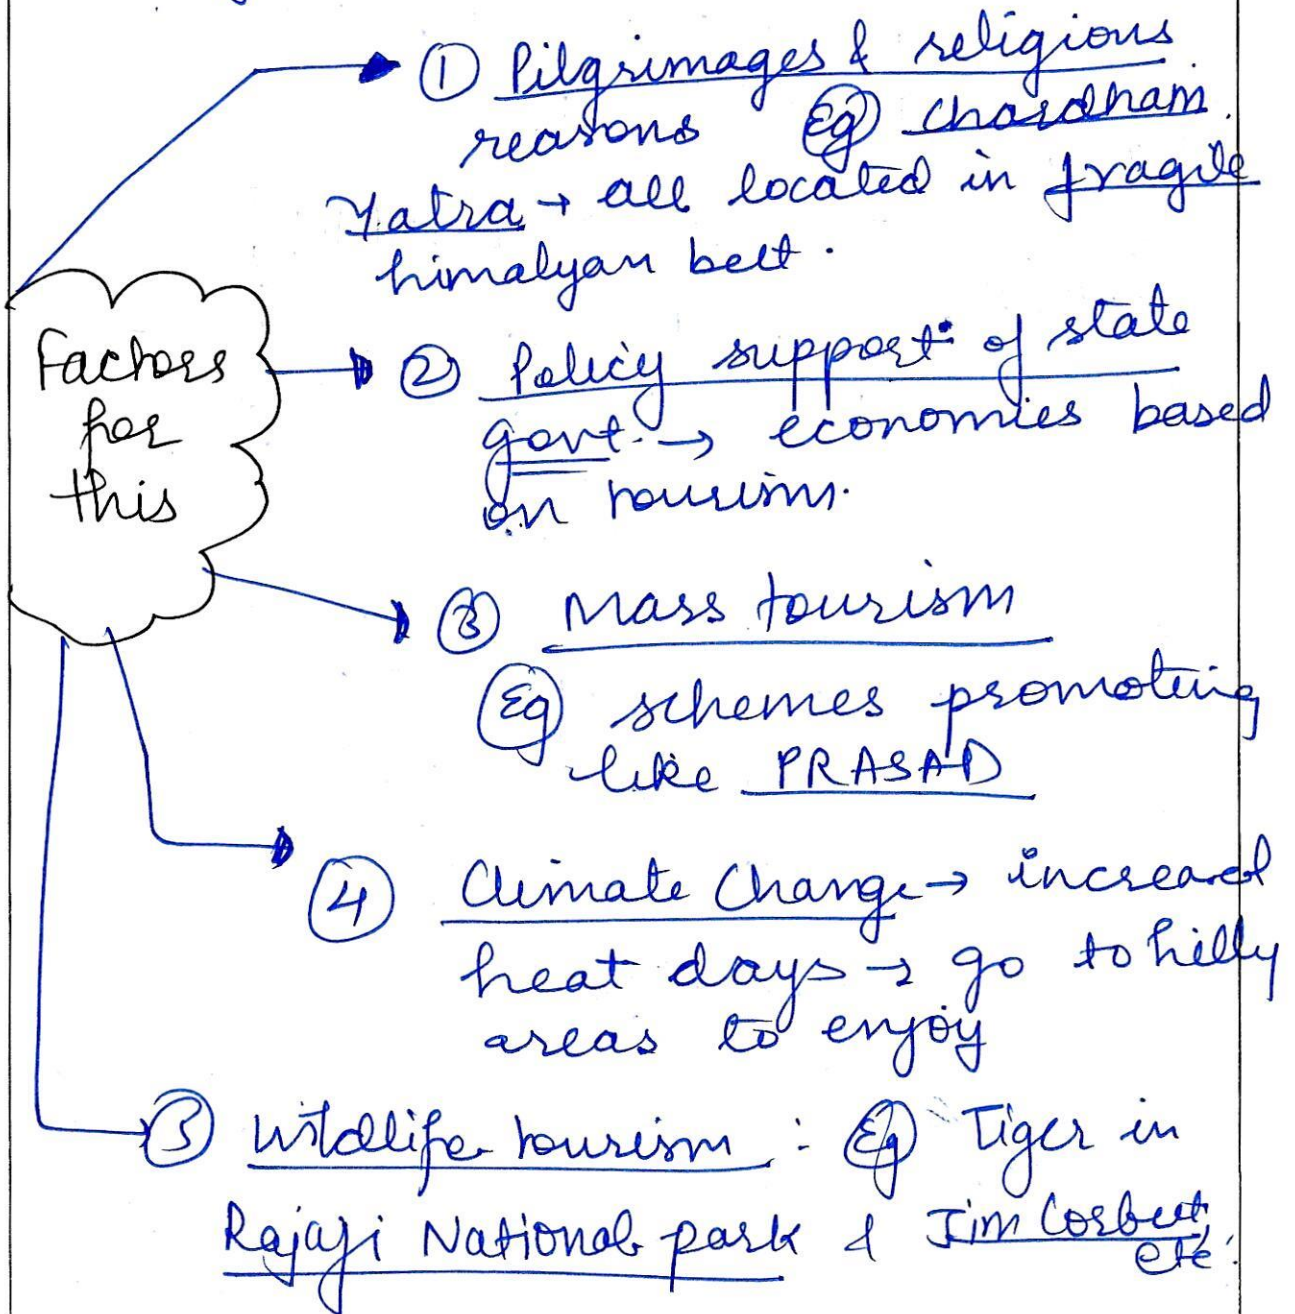 ① Pilgrimages & religious
reasons Eg Chardham
Yatra → all located in fragile
himalyan belt.
Factors
for
this
② Policy support of state
govt. → economies based
on tourism.
③ Mass tourism
Eg schemes promoting
like PRASAD
④ Climate Change → increased
heat days → go to hilly
areas to enjoy
⑤ Wildlife tourism : Eg Tiger in
Rajaji National park & Jim Corbett
etc.